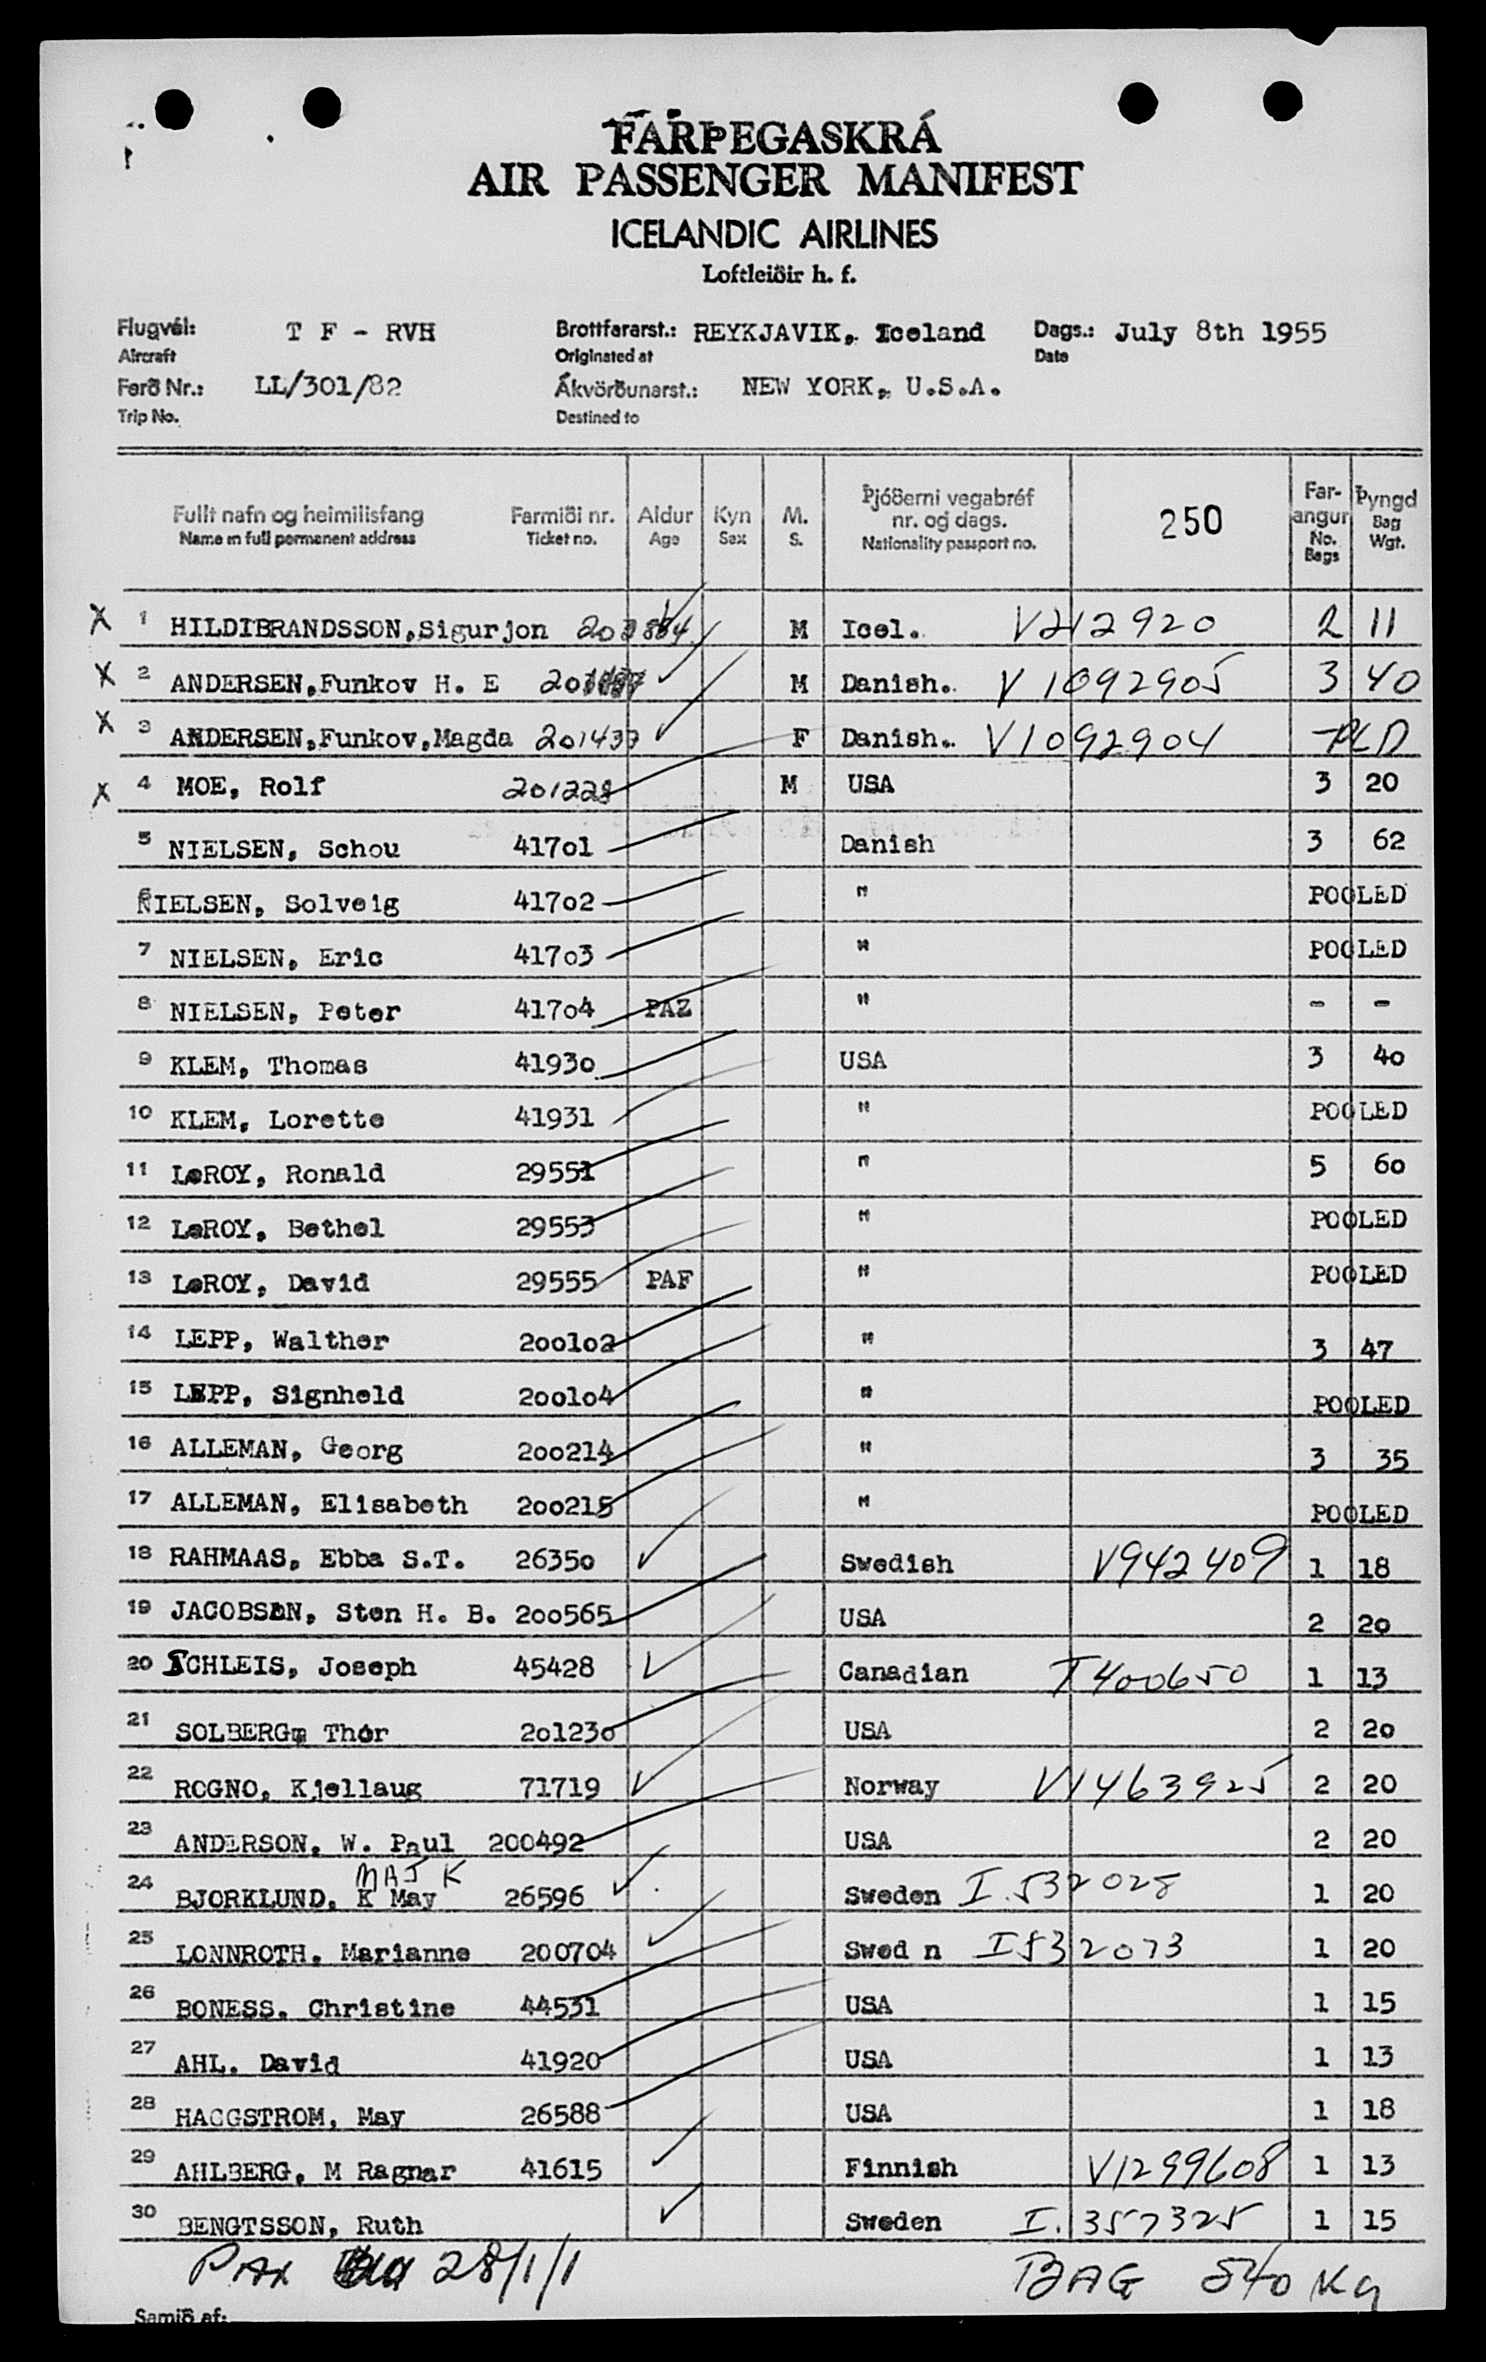 FARÞEGASKRÁ
AIR PASSENGER MANIFEST
ICELANDIC AIRLINES
Loftleiðir h. f.
Flugvél: T F - RVH Brottfararst.: REYKJAVIK, Iceland Dags.: July 8th 1955
Aircraft Originated at Date
Ferð Nr.: LL/301/82 Ákvörðunarst.: NEW YORK, U.S.A.
Trip No. Destined to
Fullt nafn og heimilisfang Farmiði nr. Aldur Kyn M. Þjóðerni vegabréf nr. og dags. 250 Far-angur Þyngd
Name in full permanent address Ticket no. Age Sex S. Nationality passport no. No. Bags Bag Wgt.
X 1 HILDIBRANDSSON,Sigurjon M Icel. V212920 2 11
X 2 ANDERSEN,Funkov H. E M Danish. V 1092905 3 40
X 3 ANDERSEN,Funkov,Magda 201439 F Danish. V1092904 PLD
X 4 MOE, Rolf 201228 M USA 3 20
5 NIELSEN, Schou 41701 Danish 3 62
6 NIELSEN, Solveig 41702 " POOLED
7 NIELSEN, Eric 41703 " POOLED
8 NIELSEN, Peter 41704 PAZ " - -
9 KLEM, Thomas 41930 USA 3 40
10 KLEM, Lorette 41931 " POOLED
11 LeROY, Ronald 29551 " 5 60
12 LeROY, Bethel 29553 " POOLED
13 LeROY, David 29555 PAF " POOLED
14 LEPP, Walther 200102 " 3 47
15 LEPP, Signheld 200104 " POOLED
16 ALLEMAN, Georg 200214 " 3 35
17 ALLEMAN, Elisabeth 200215 " POOLED
18 RAHMAAS, Ebba S.T. 26350 Swedish V942409 1 18
19 JACOBSEN, Sten H. B. 200565 USA 2 20
20 SCHLEIS, Joseph 45428 Canadian T400650 1 13
21 SOLBERG, Thor 201230 USA 2 20
22 ROGNO, Kjellaug 71719 Norway V1463925 2 20
23 ANDERSON, W. Paul 200492 USA 2 20
MAJ K
24 BJORKLUND, K May 26596 Sweden I.532028 1 20
25 LONNROTH, Marianne 200704 Swed n I532073 1 20
26 BONESS, Christine 44531 USA 1 15
27 AHL, David 41920 USA 1 13
28 HAGGSTROM, May 26588 USA 1 18
29 AHLBERG, M Ragnar 41615 Finnish V1299608 1 13
30 BENGTSSON, Ruth Sweden I.357325 1 15
PAX 28/1/1 BAG 540 Kg
Samið af: